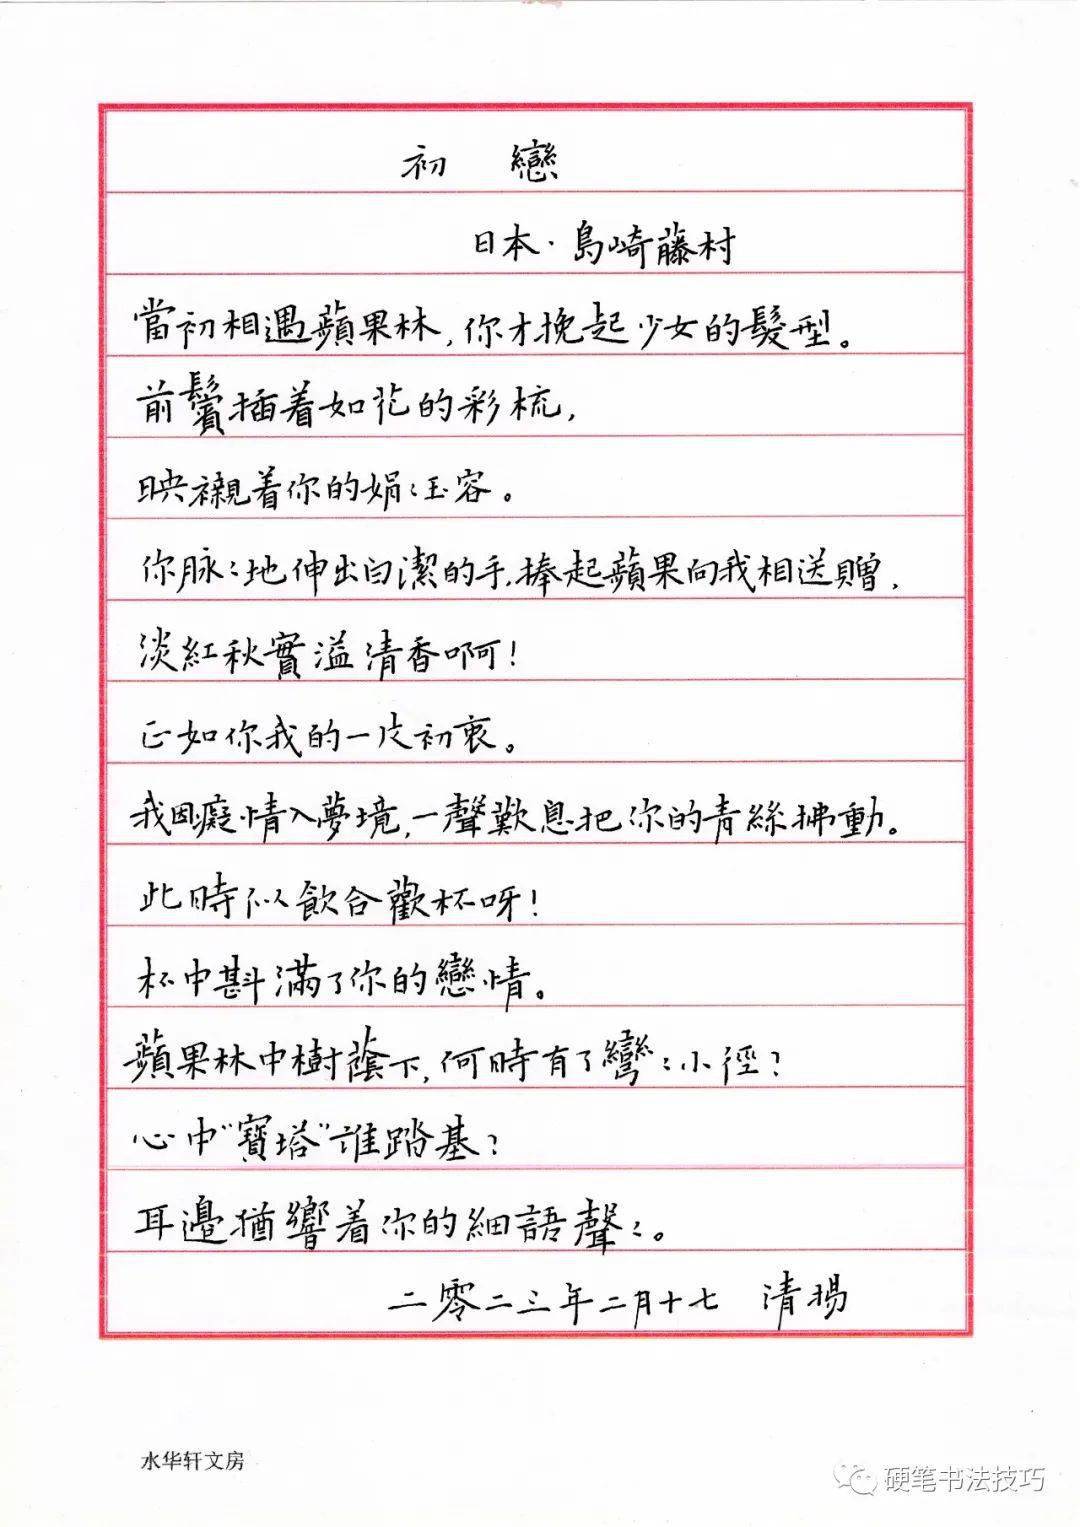 初 戀
日本·島崎藤村
當初相遇蘋果林,你才挽起少女的髮型。
前鬢插着如花的彩梳,
映襯着你的娟〻玉容。
你脉〻地伸出白潔的手,捧起蘋果向我相送贈,
淡紅秋實溢清香啊!
正如你我的一片初衷。
我因癡情入夢境,一聲歎息把你的青絲拂動。
此時似飲合歡杯呀!
杯中斟滿了你的戀情。
蘋果林中樹蔭下,何時有了彎〻小徑?
心中“寶塔”誰踏基?
耳邊猶響着你的細語聲〻。
二零二三年二月十七 清揚
水华轩文房
硬笔书法技巧